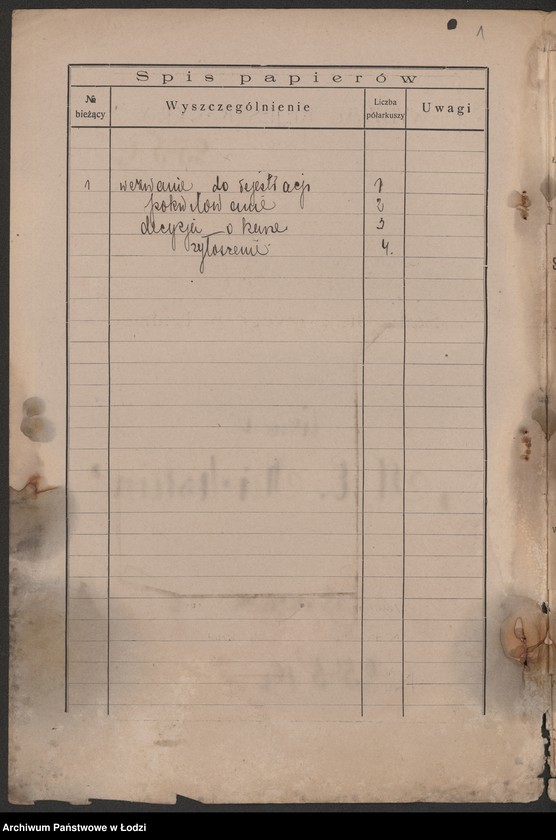 1
Spis papierów
№ bieżący Wyszczególnienie Liczba półarkuszy Uwagi
1 wezwanie do rejestracji 1
pokwitowanie 2
decyzja o karze 3
zgłoszenie 4.
Archiwum Państwowe w Łodzi